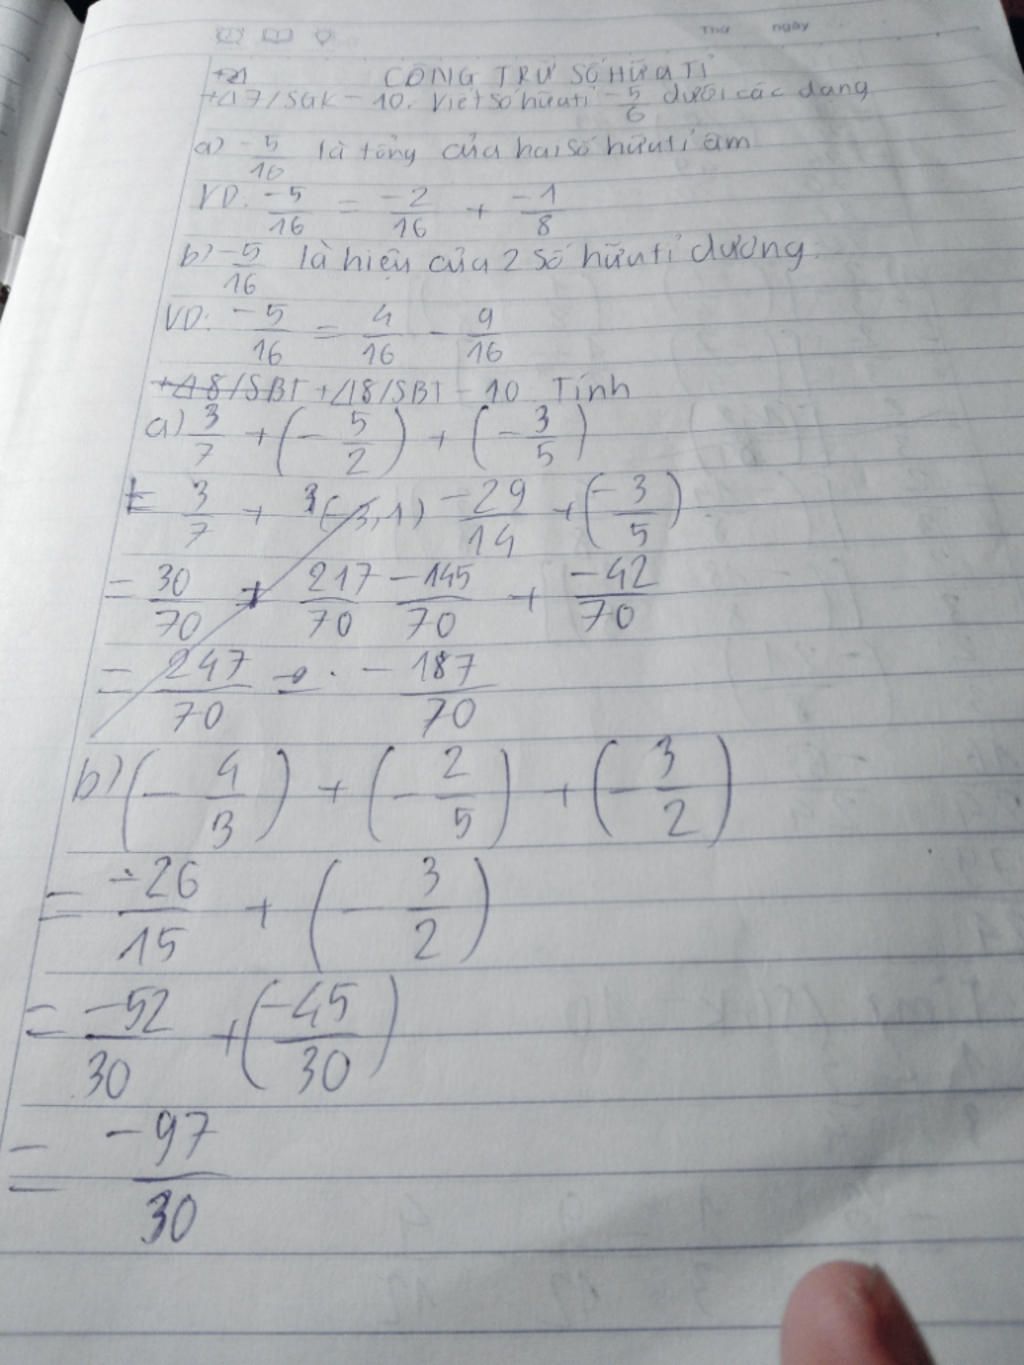 Thứ ngày
CÔNG TRỪ SỐ HỮU TỈ
+Δ7/SGK - 10. Viết số hữu tỉ -5/6 dưới các dạng
a) -5/16 là tổng của hai số hữu tỉ âm
VD: -5/16 = -2/16 + -1/8
b) -5/16 là hiệu của 2 số hữu tỉ dương.
VD: -5/16 = 4/16 - 9/16
+Δ8/SBT +Δ8/SBT - 10 Tính
a) 3/7 + (-5/2) + (-3/5)
= 3/7 + (-3,1) -29/14 + (-3/5)
= 30/70 + 217/70 -145/70 + -42/70
= 247/70 -187/70
b) (-4/3) + (-2/5) + (-3/2)
= -26/15 + (-3/2)
= -52/30 + (-45/30)
= -97/30